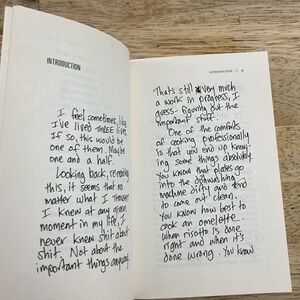 INTRODUCTION
I feel sometimes, like
I've lived THREE lives
If so, this would be
one of them. Maybe
one and a half.
Looking back, re-reading
this, it seems that no
matter what I THOUGHT
I knew at any given
moment in my life, I
never knew shit about
shit. Not about the
important things anyway.
INTRODUCTION
That's still very much
a work in progress, I
guess - figuring out the
important stuff.
One of the comforts
of cooking professionally
is that you end up know-
ing some things absolutely
You know that plates go
into the dishwashing
machine dirty and tend
to come out clean.
You know how best to
cook an omelette.
When risotto is done
right and when it's
done wrong. You know